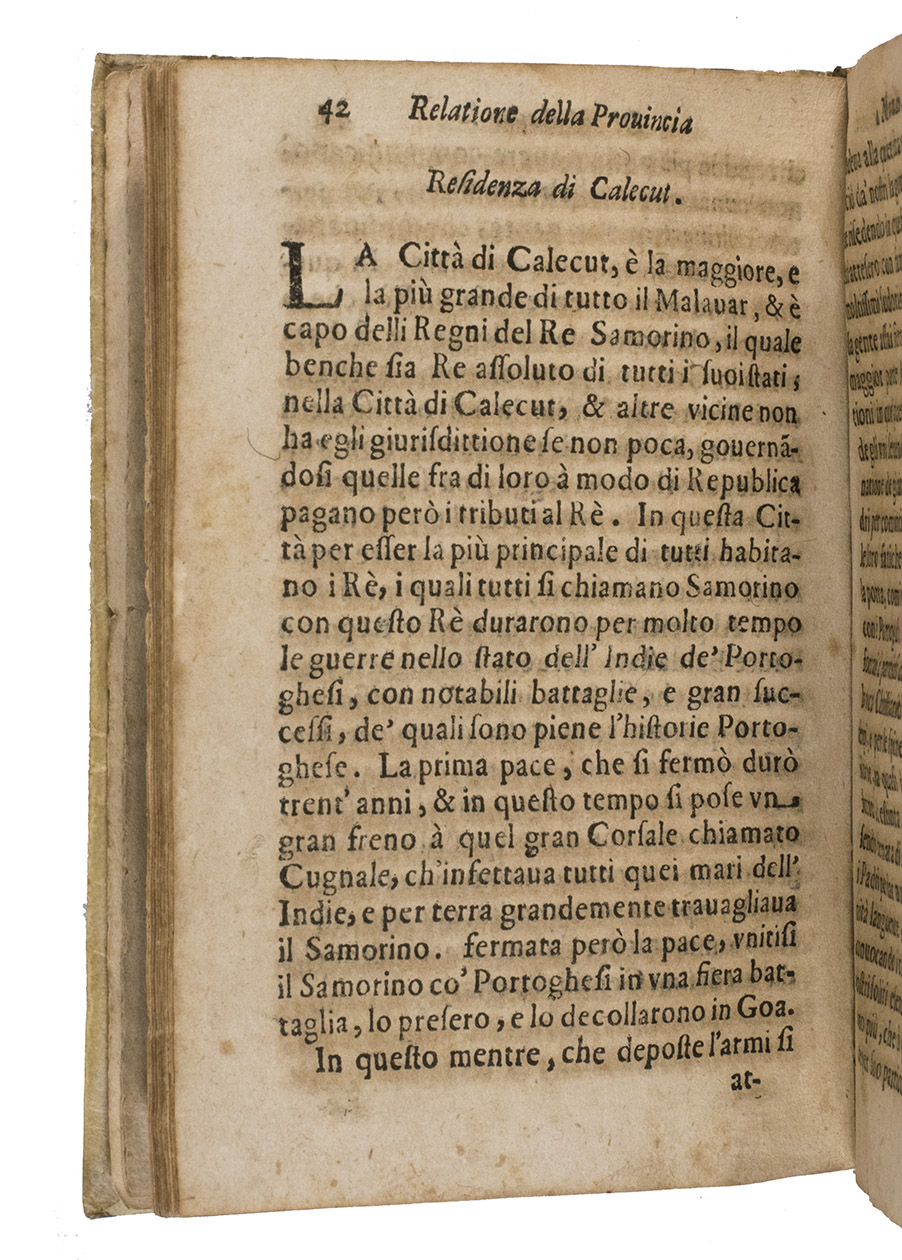 42 Relatione della Prouincia
Reſidenza di Calecut.
LA Città di Calecut, è la maggiore, e
la più grande di tutto il Malauar, & è
capo delli Regni del Re Samorino, il quale
benche ſia Re aſſoluto di tutti i ſuoi ſtati,
nella Città di Calecut, & altre vicine non
ha egli giuriſdittione ſe non poca, gouernā-
doſi quelle fra di loro à modo di Republica
pagano però i tributi al Rè. In queſta Cit-
tà per eſſer la più principale di tutti habita-
no i Rè, i quali tutti ſi chiamano Samorino
con queſto Rè durarono per molto tempo
le guerre nello ſtato dell' Indie de' Porto-
gheſi, con notabili battaglie, e gran ſuc-
ceſſi, de' quali ſono piene l'hiſtorie Porto-
gheſe. La prima pace, che ſi fermò durò
trent' anni, & in queſto tempo ſi poſe vn
gran freno à quel gran Corſale chiamato
Cugnale, ch'infettaua tutti quei mari dell'
Indie, e per terra grandemente trauagliaua
il Samorino. fermata però la pace, vnitiſi
il Samorino co' Portogheſi in vna fiera bat-
taglia, lo preſero, e lo decollarono in Goa.
In queſto mentre, che depoſte l'armi ſi
at-